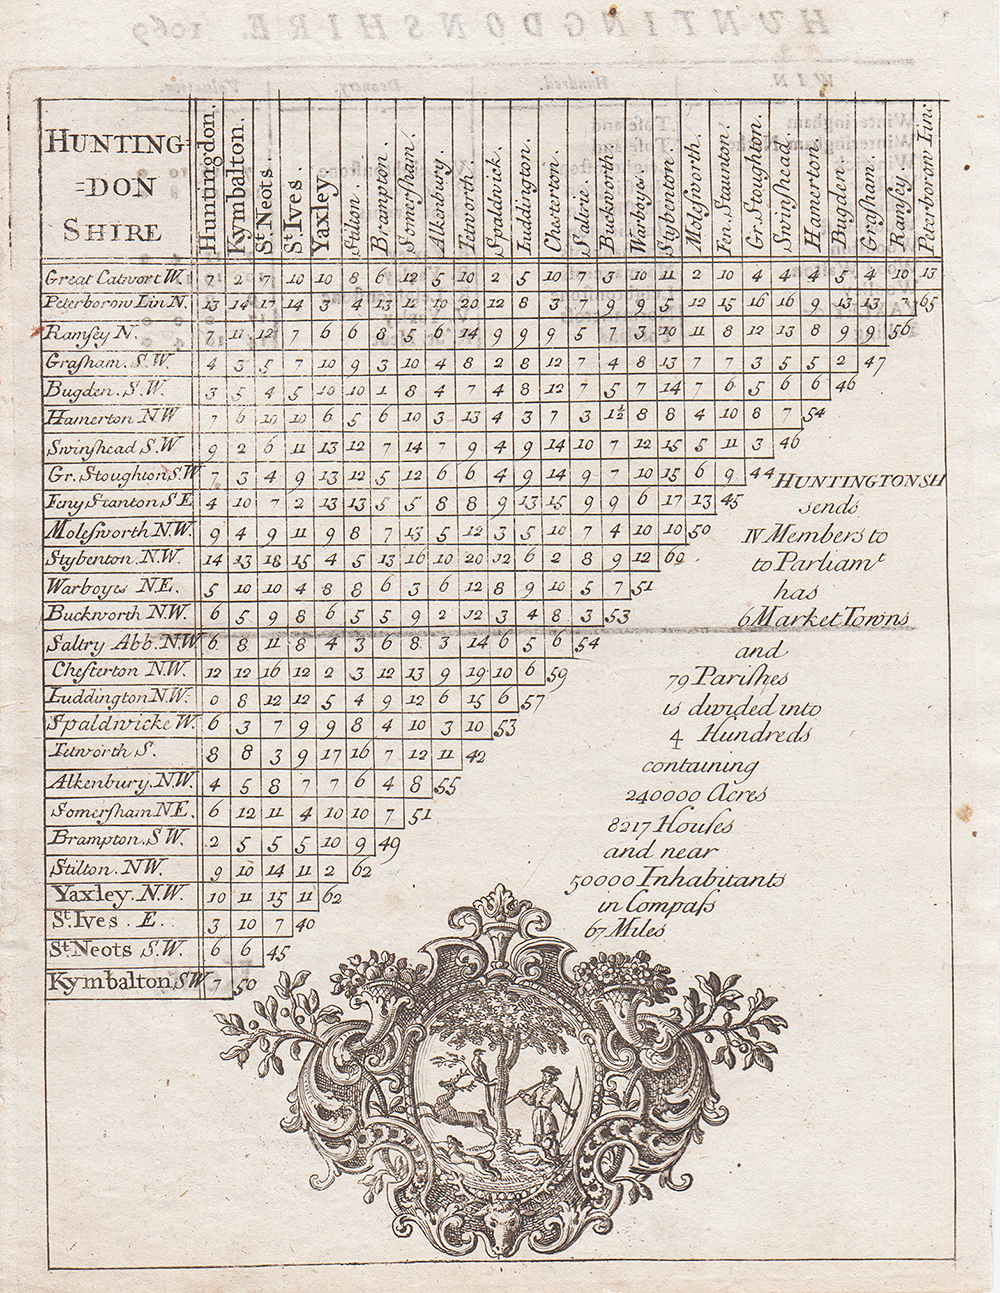 HUNTINGDONSHIRE. 1069
WIN Hundred. Deanery. Valuation.
HUNTING=
=DON
SHIRE
Huntingdon. Kymbalton. St. Neots. St. Ives. Yaxley Stilton. Brampton. Somerſham. Alkerbury. Tetworth. Spaldwick. Luddington. Chesterton. Saltrie. Buckworth. Warboyse Stybenton. Moleſworth. Fen. Staunton. Gr. Stoughton. Swinſhead Hamerton Bugden. Graſham. Ramſey. Peterborow Linc
Great Catwort W. 7 2 7 10 10 8 6 12 5 10 2 5 10 7 3 10 11 2 10 4 4 4 5 4 10 13
Peterborow Lin N. 13 14 17 14 3 4 13 11 10 20 12 8 3 7 9 9 5 12 15 16 16 9 13 13 7 65
Ramſey N. 7 11 12 7 6 6 8 5 6 14 9 9 9 5 7 3 10 11 8 12 13 8 9 9 56
Graſham. S.W. 4 3 5 7 10 9 3 10 4 8 2 8 12 7 4 8 13 7 7 3 5 5 2 47
Bugden. S.W. 3 5 4 5 10 10 1 8 4 7 4 8 12 7 5 7 14 7 6 5 6 6 46
Hamerton NW 7 6 10 10 6 5 6 10 3 13 4 3 7 3 1½ 8 8 4 10 8 7 54
Swinshead S.W 9 2 6 11 13 12 7 14 7 9 4 9 14 10 7 12 15 5 11 3 46
Gr. Stoughton S.W 7 3 4 9 13 12 5 12 6 6 4 9 14 9 7 10 15 6 9 44
HUNTINGTONSH
Feny Stanton S.E 4 10 7 2 13 13 5 5 8 8 9 13 15 9 9 6 17 13 45
sends
Moleſworth N.W. 9 4 9 11 9 8 7 13 5 12 3 5 10 7 4 10 10 50
IV Members to
Stybenton. N.W. 14 13 18 15 4 5 13 16 10 20 12 6 2 8 9 12 60
to Parliamt
Warboyes N.E. 5 10 10 4 8 8 6 3 6 12 8 9 10 5 7 51
has
Buckworth N.W. 6 5 9 8 6 5 5 9 2 12 3 4 8 3 53
6 Market Towns
Saltry Abb. N.W 6 8 11 8 4 3 6 8 3 14 6 5 6 54
and
Chesterton N.W. 12 12 16 12 2 3 12 13 9 19 10 6 59
79 Pariſhes
Luddington N.W. 0 8 12 12 5 4 9 12 6 15 6 57
is divided into
Spaldwicke W 6 3 7 9 9 8 4 10 3 10 53
4 Hundreds
Tetworth S. 8 8 3 9 17 16 7 12 11 42
containing
Alkenbury. N.W. 4 5 8 7 7 6 4 8 55
240000 Acres
Somerſham N.E. 6 12 11 4 10 10 7 51
8217 Houſes
Brampton. S.W. 2 5 5 5 10 9 49
and near
Stilton. NW. 9 10 14 11 2 62
50000 Inhabitants
Yaxley. N.W 10 11 15 11 62
in Compaſs
St. Ives. E. 3 10 7 40
67 Miles
St. Neots S.W. 6 6 45
Kymbalton SW 7 50